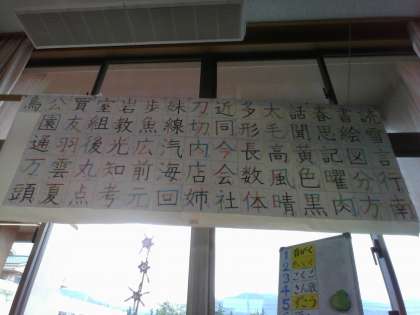 読雪言行南
書絵図分方
春思記曜肉
話聞黄色黒
大毛高風晴
多形長数体
近同今会社
刀切内店姉
妹線汽海回
歩魚広前元
岩教光知考
室組後丸点
買友羽雲夏
公園通万頭
鳥
1
2
3 こくご
4
5 ずこう